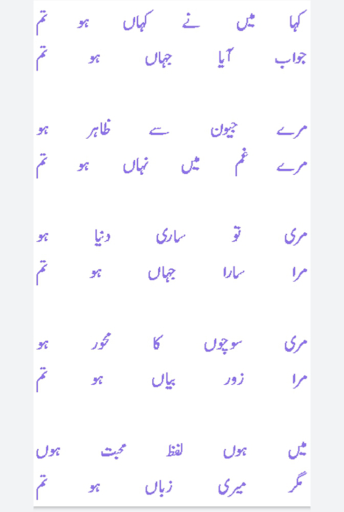 کہا میں نے کہاں ہو تم
جواب آیا جہاں ہو تم
مرے جیون سے ظاہر ہو
مرے غم میں نہاں ہو تم
مری تو ساری دنیا ہو
مرا سارا جہاں ہو تم
مری سوچوں کا محور ہو
مرا زور بیاں ہو تم
میں ہوں لفظ محبت ہوں
مگر میری زباں ہو تم